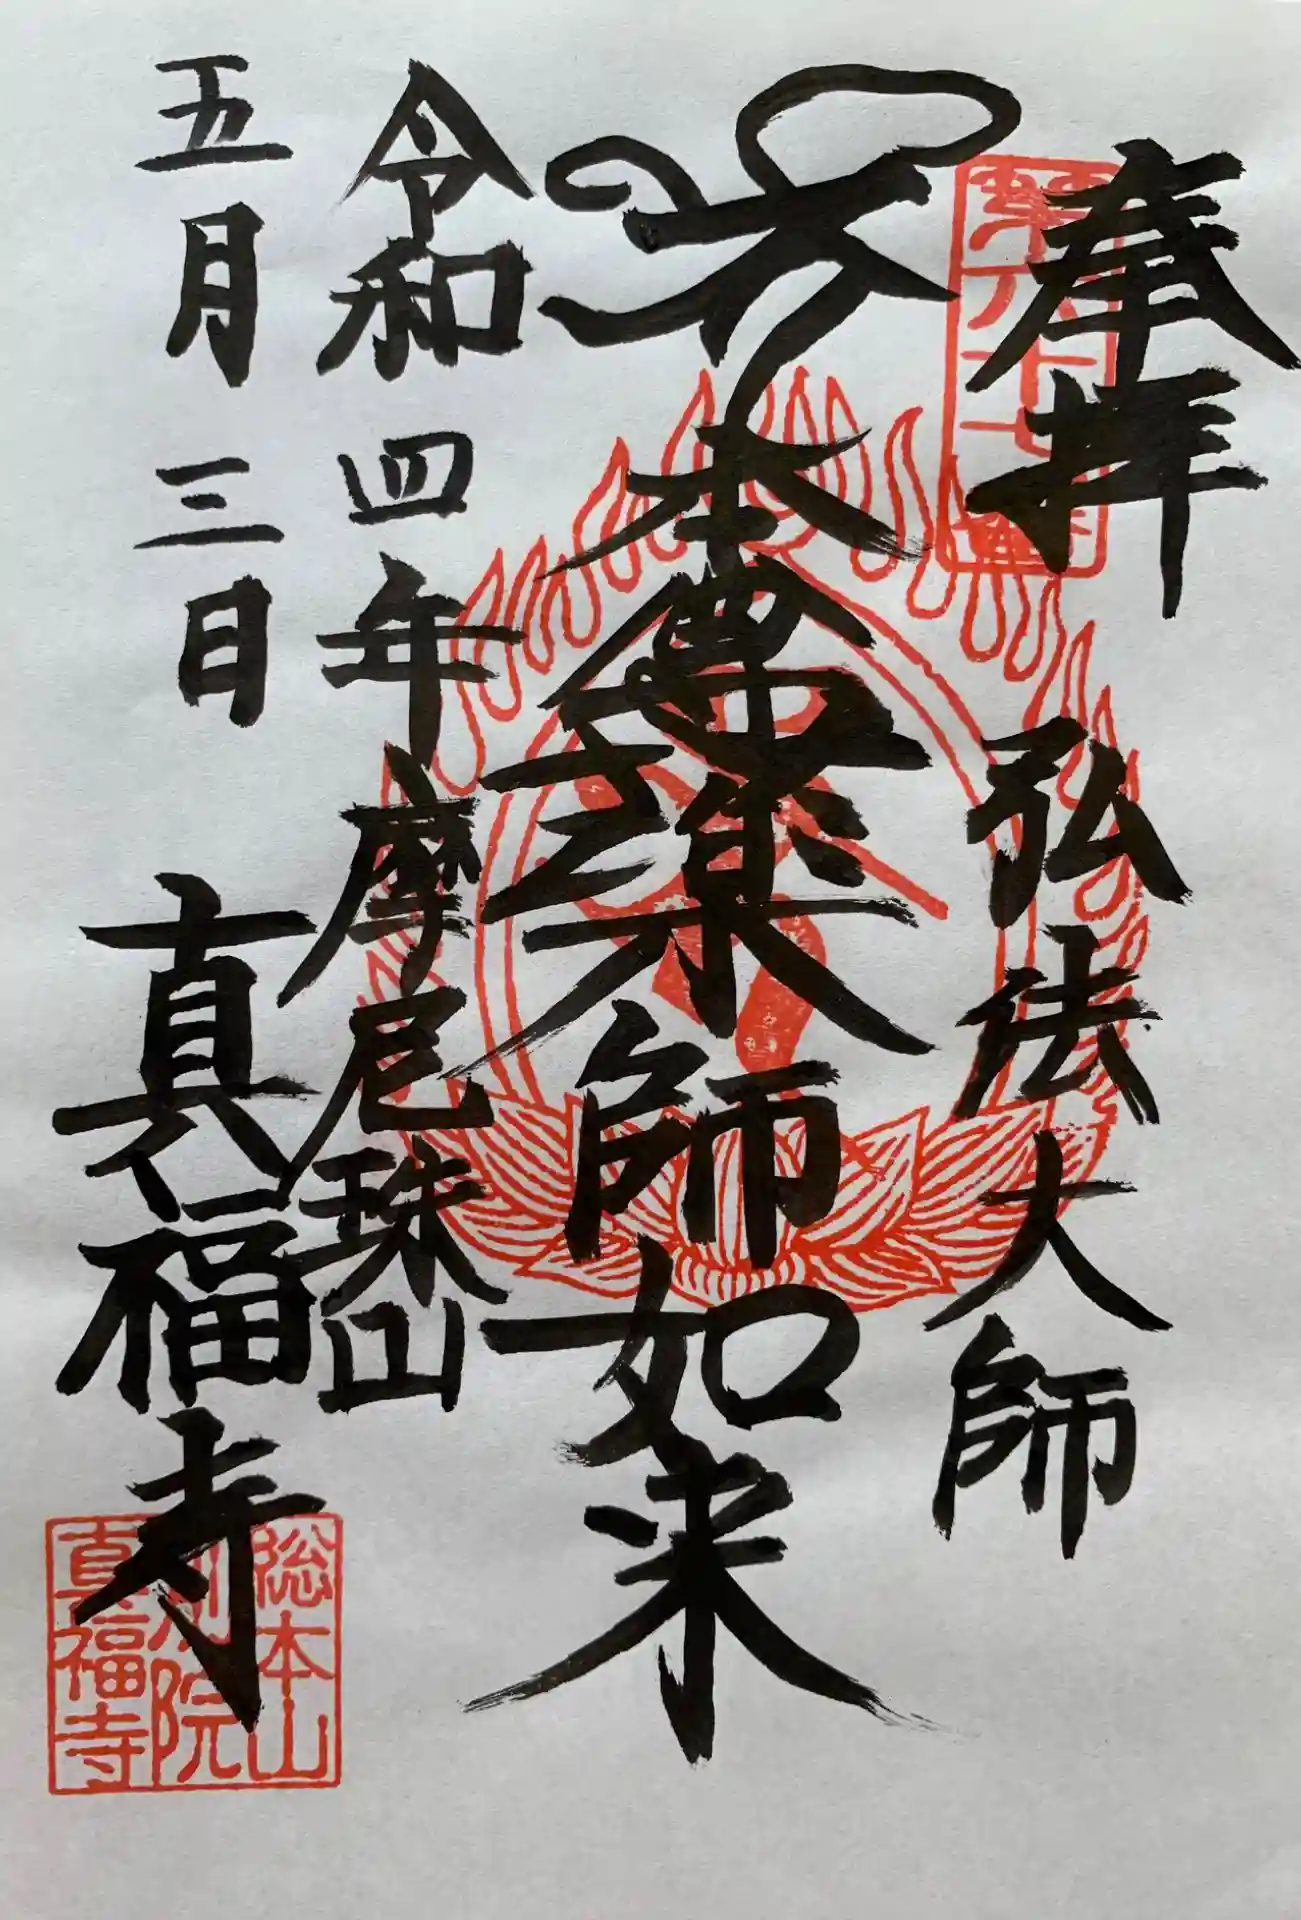 奉拝
弘法大師
本尊薬師如来
令和四年
摩尼珠山
五月三日
真福寺
総本山
院
真福寺